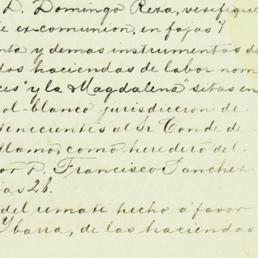 D. Domingo Reza, verifique
de ex-comunion, en fojas 7
nta y demas instrumentos d
dos haciendas de labor nom
ces" y la Magdalena" sitas en
ol-blanco jurisdiccion de
tenecientes al Sr Conde de
llamo, como heredero del
or D. Francisco Sanchez
jas 28.
del remate hecho á favor
Ybarra, de las haciendas